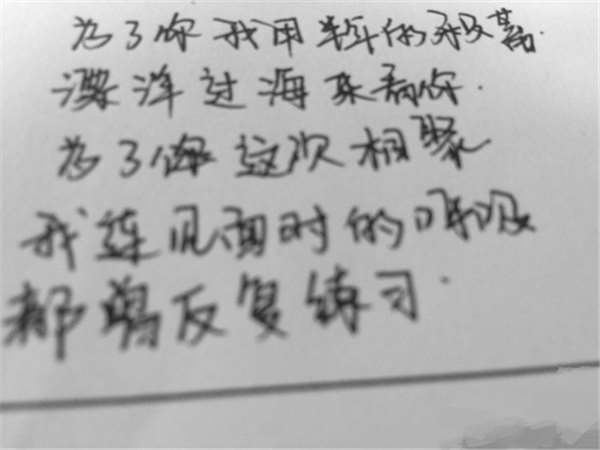 为了你我用半年的积蓄.
漂洋过海来看你.
为了这次相聚
我连见面时的呼吸
都曾反复练习.